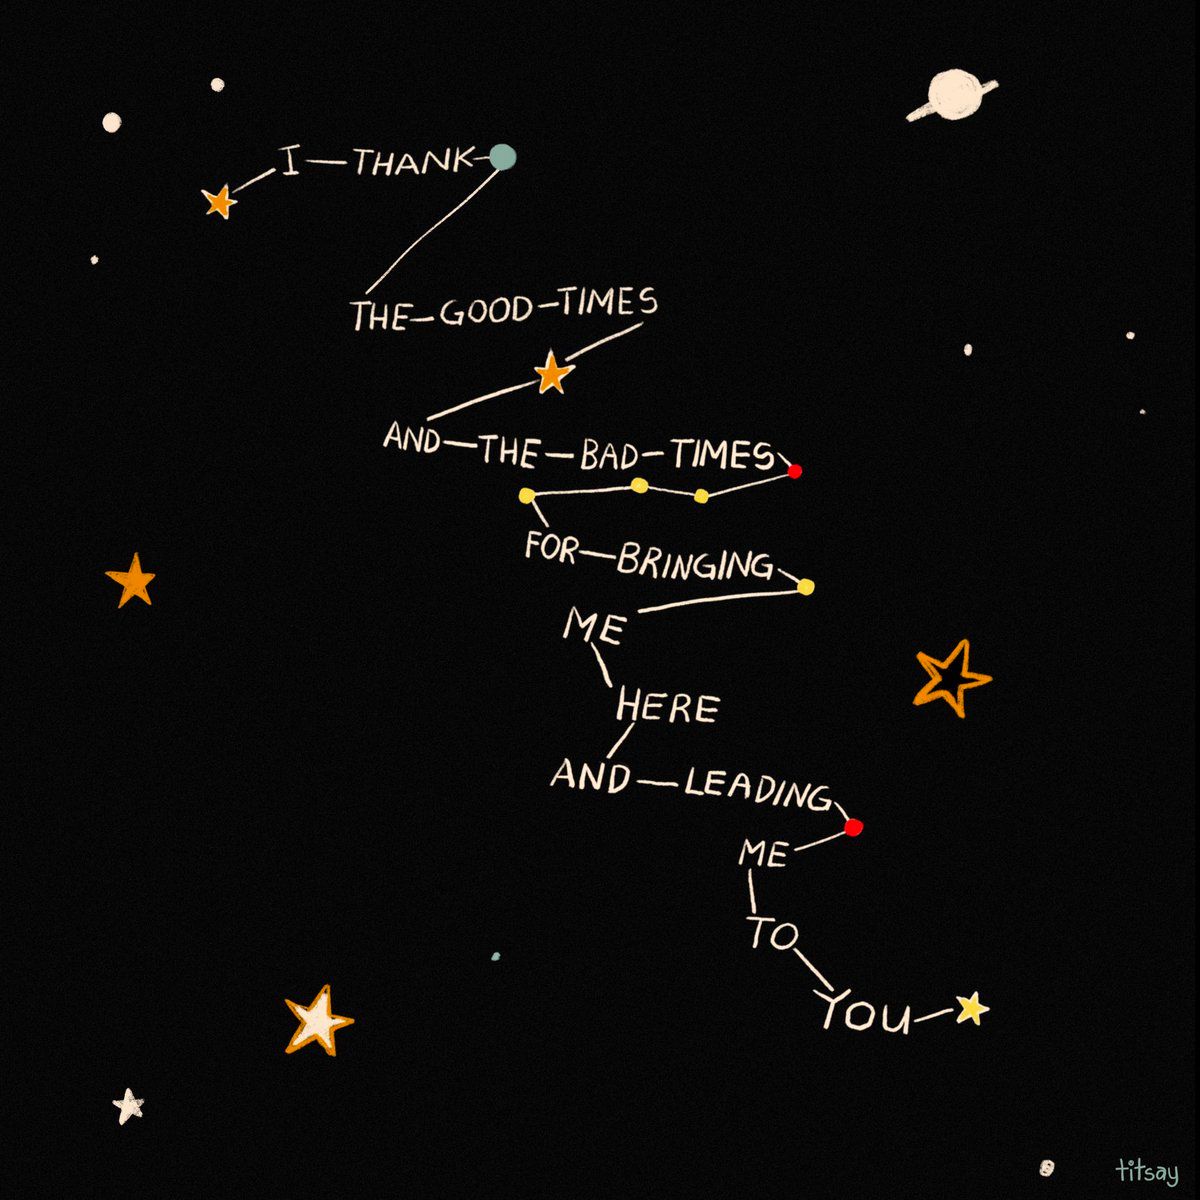 I THANK
THE GOOD TIMES
AND THE BAD TIMES
FOR BRINGING
ME
HERE
AND LEADING
ME
TO
YOU
titsay